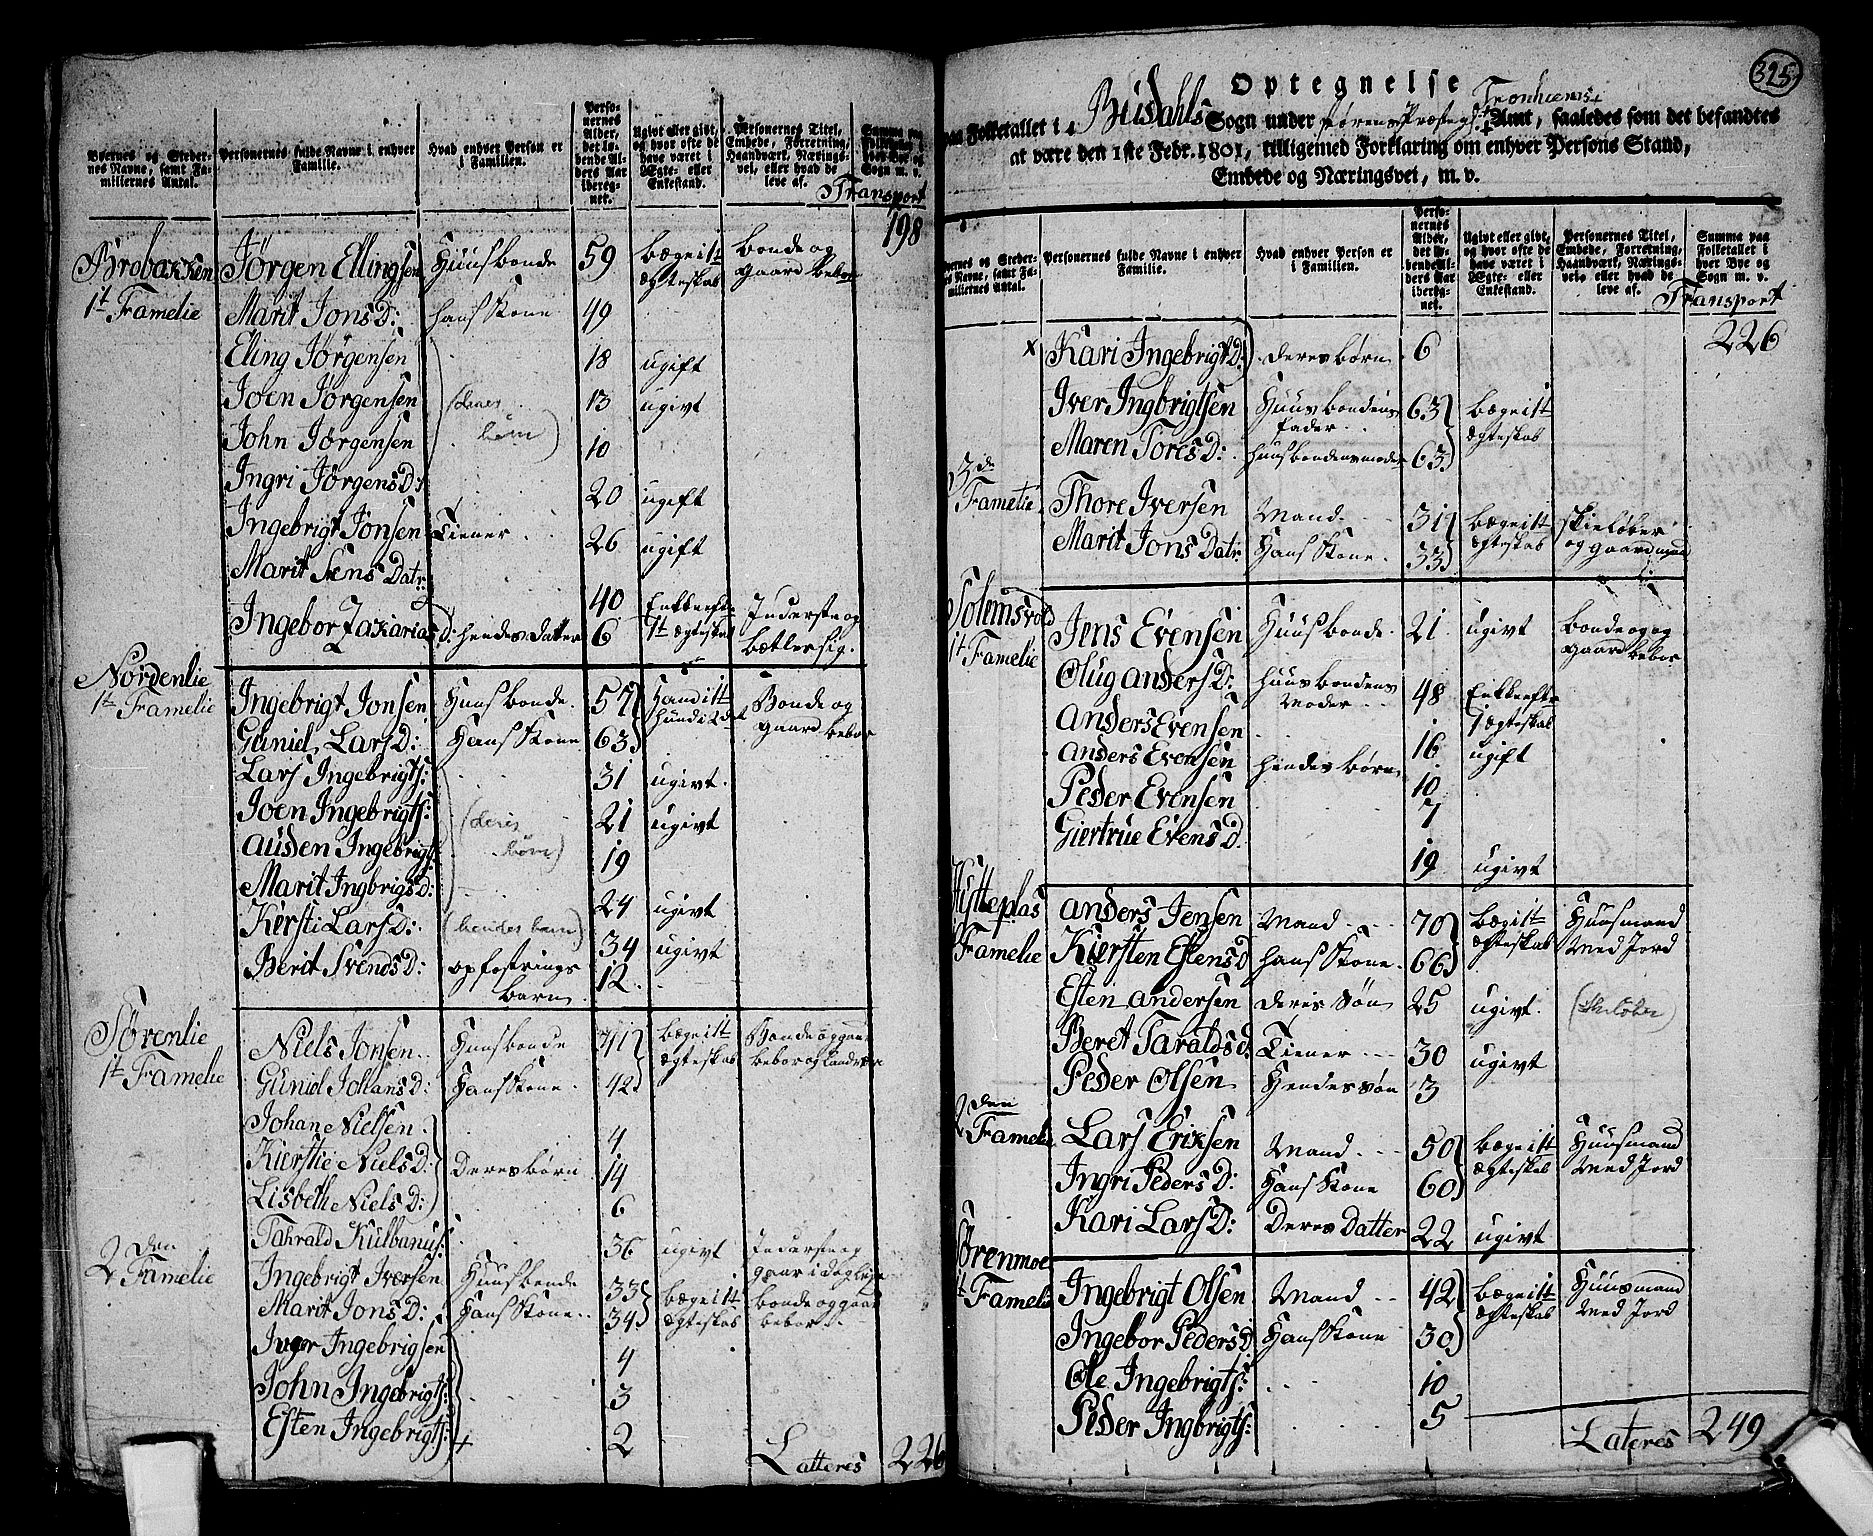 Byernes og Stedernes Navne, samt Familiernes Antal.
Personernes fulde Navne i enhver Familie.
Hvad enhver Person er i Familien.
Personernes Alder, det løbende Alders Aar iberegnet.
Ugivt eller givt, og hvor ofte de have været i Ægte- eller Enkestand.
Personernes Titel, Embede, Forretning, Haandværk, Næringsvei, eller hvad de leve af.
Summa paa Folketallet i hver Bye og Sogn m. v.
Transport
198
Brobakken Jørgen Ellingsen Huusbonde 59 begge i 1te bonde og
1te Famelie ægteskab gaard beboer
Marit Jons D: hans Kone 49
Eling Jørgensen 18 ugift
Joen Jørgensen (deres 13 ugivt
John Jørgensen børn) 10
Ingri Jørgens D: 20 ugift
Ingebrigt Jonsen Tiener 26 ugift
Marit Sens Datr: 40 Enke efter Inderste og
Ingebor Zakarias D: hendes datter 6 1te ægteskab
Nordenlie
1te Famelie Ingebrigt Jonsen Huusbonde 57 Bonde og
Guniel Lars D: Hans Kone 63 gaard beboer
Lars Ingebrigts: 31 ugivt
Joen Ingebrigts: (deres 21 ugivt
Auden Ingebrigts: børn) 19
Marit Ingbrigs D: 24 ugivt
Kiersti Lars D: (hendes barn) 34 ugivt
Berit Svends D: opfostrings 12
barn
Sørenlie Niels Jonsen Huusbonde 41 begge i 1te Bonde og gaard
1te Famelie Guniel Johans D: Hans Kone 42 ægteskab beboer og
Johane Nielsen 4
Kierstie Niels D: Deres børn 14
Lisbeth Niels D: 6
Tahrald Kulbanus: 36 ugivt Inderste og
2den Famelie Ingebrigt Iversen Huusbonde 33 begge i 1te bonde og gaard
Marit Jons D: Hans Kone 34 ægteskab beboer
Iver Ingebrigsen 4
John Ingebrigts: 3
Esten Ingebrigts: 2
Latteres 226
325
Optegnelse
paa Folketallet i Budahls Sogn under Størens Præsteg: Tronhiems Amt, saaledes som det befandtes
at være den 1ste Febr. 1801, tilligemed Forklaring om enhver Persons Stand,
Embede og Næringsvei, m. v.
Byernes og Stedernes Navne, samt Familiernes Antal.
Personernes fulde Navne i enhver Familie.
Hvad enhver Person er i Familien.
Personernes Alder, det løbende Alders Aar iberegnet.
Ugivt eller givt, og hvor ofte de have været i Ægte- eller Enkestand.
Personernes Titel, Embede, Forretning, Haandværk, Næringsvei, eller hvad de leve af.
Summa paa Folketallet i hver Bye og Sogn m. v.
Transport
226
x Kari Ingebrigt D: deres børn 6
Iver Ingbrigtsen Huusbondens 63 begge i 1te
fader ægteskab
Maren Tores D: huusbondens moder 63
3de Famelie Thore Iversen Mand 31 begge i 1te skieløber
Marit Jons Datr: Hans Kone 33 ægteskab og gaardmand
Solemsvold
1te Famelie Jens Evensen Huusbonde 21 ugivt bonde og
gaard beboer
Olug Anders D: huusbondens 48 Enke efter
Moder 1 ægteskab
Anders Evensen 16 ugift
Anders Evensen hendes børn 10
Peder Evensen 7
Giertrue Evens D. 19 ugivt
Hytteplas Anders Jensen Mand 70 begge i 1te Huusmand
Famelie Kiersten Estens D hans Kone 66 ægteskab Med Jord
Esten Andersen deres Søn 25 ugivt (skiløber)
Beret Taralds D: Tiener 30 ugivt
Peder Olsen Hendes søn 3
2den Famelie Lars Eriksen Mand 50 begge i 1te Huusmand
Ingri Peders D: Hans Kone 60 ægteskab Med Jord
Kari Lars D: Deres Datter 22 ugivt
Sørenmoe
1te Famelie Ingebrigt Olsen Mand 42 begge i 1te Huusmand
Ingebor Peders D Hans Kone 30 ægteskab Med Jord
Ole Ingebrigts: 10
Peder Ingbrigts: 5
Lateres 249